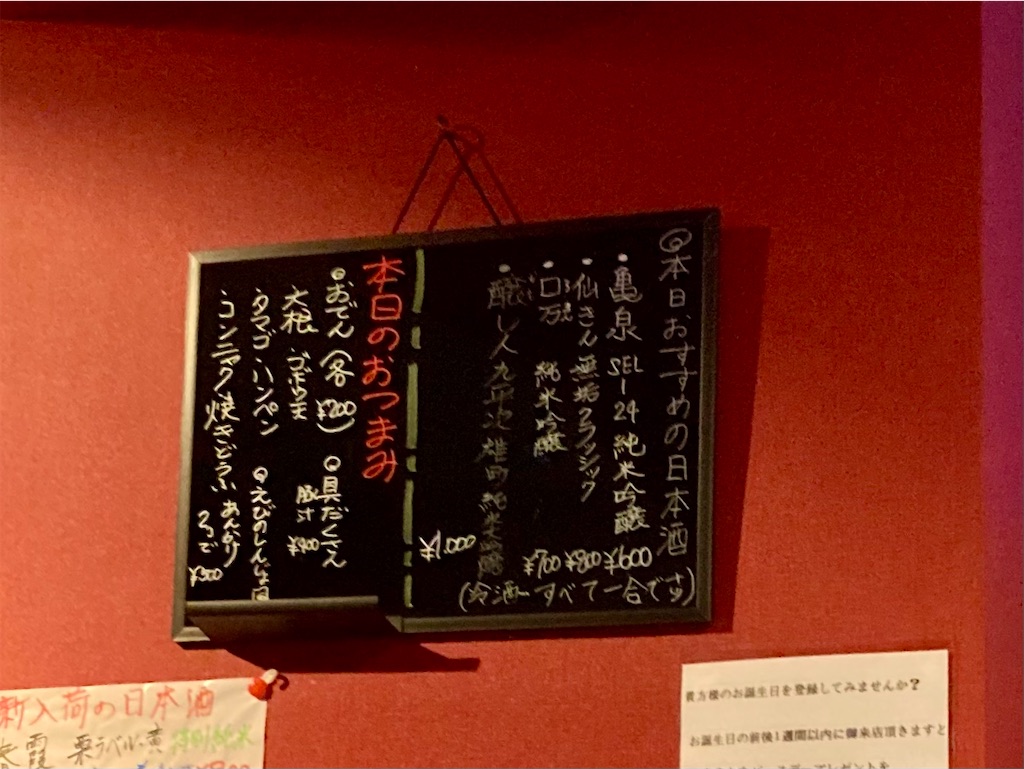 ◎本日おすすめの日本酒
・亀泉 SEL-24 純米吟醸 ¥600
・仙きん 無垢クラシック ¥800
・ロ万 純米吟醸 ¥700
・醸し人九平次 雄町 純米吟醸 ¥1,000
(冷酒すべて一合です)
本日のおつまみ
◎おでん(各¥200)
大根 ゴボウ天
タマゴ ハンペン
コンニャク 焼きどうふ
◎具だくさん
豚汁 ¥400
◎えびのしんじょ
あんかけ
¥500
新入荷の日本酒
春霞 栗ラベル・黄 特別純米
貴方様のお誕生日を登録してみませんか?
お誕生日の前後1週間以内に御来店頂きますと